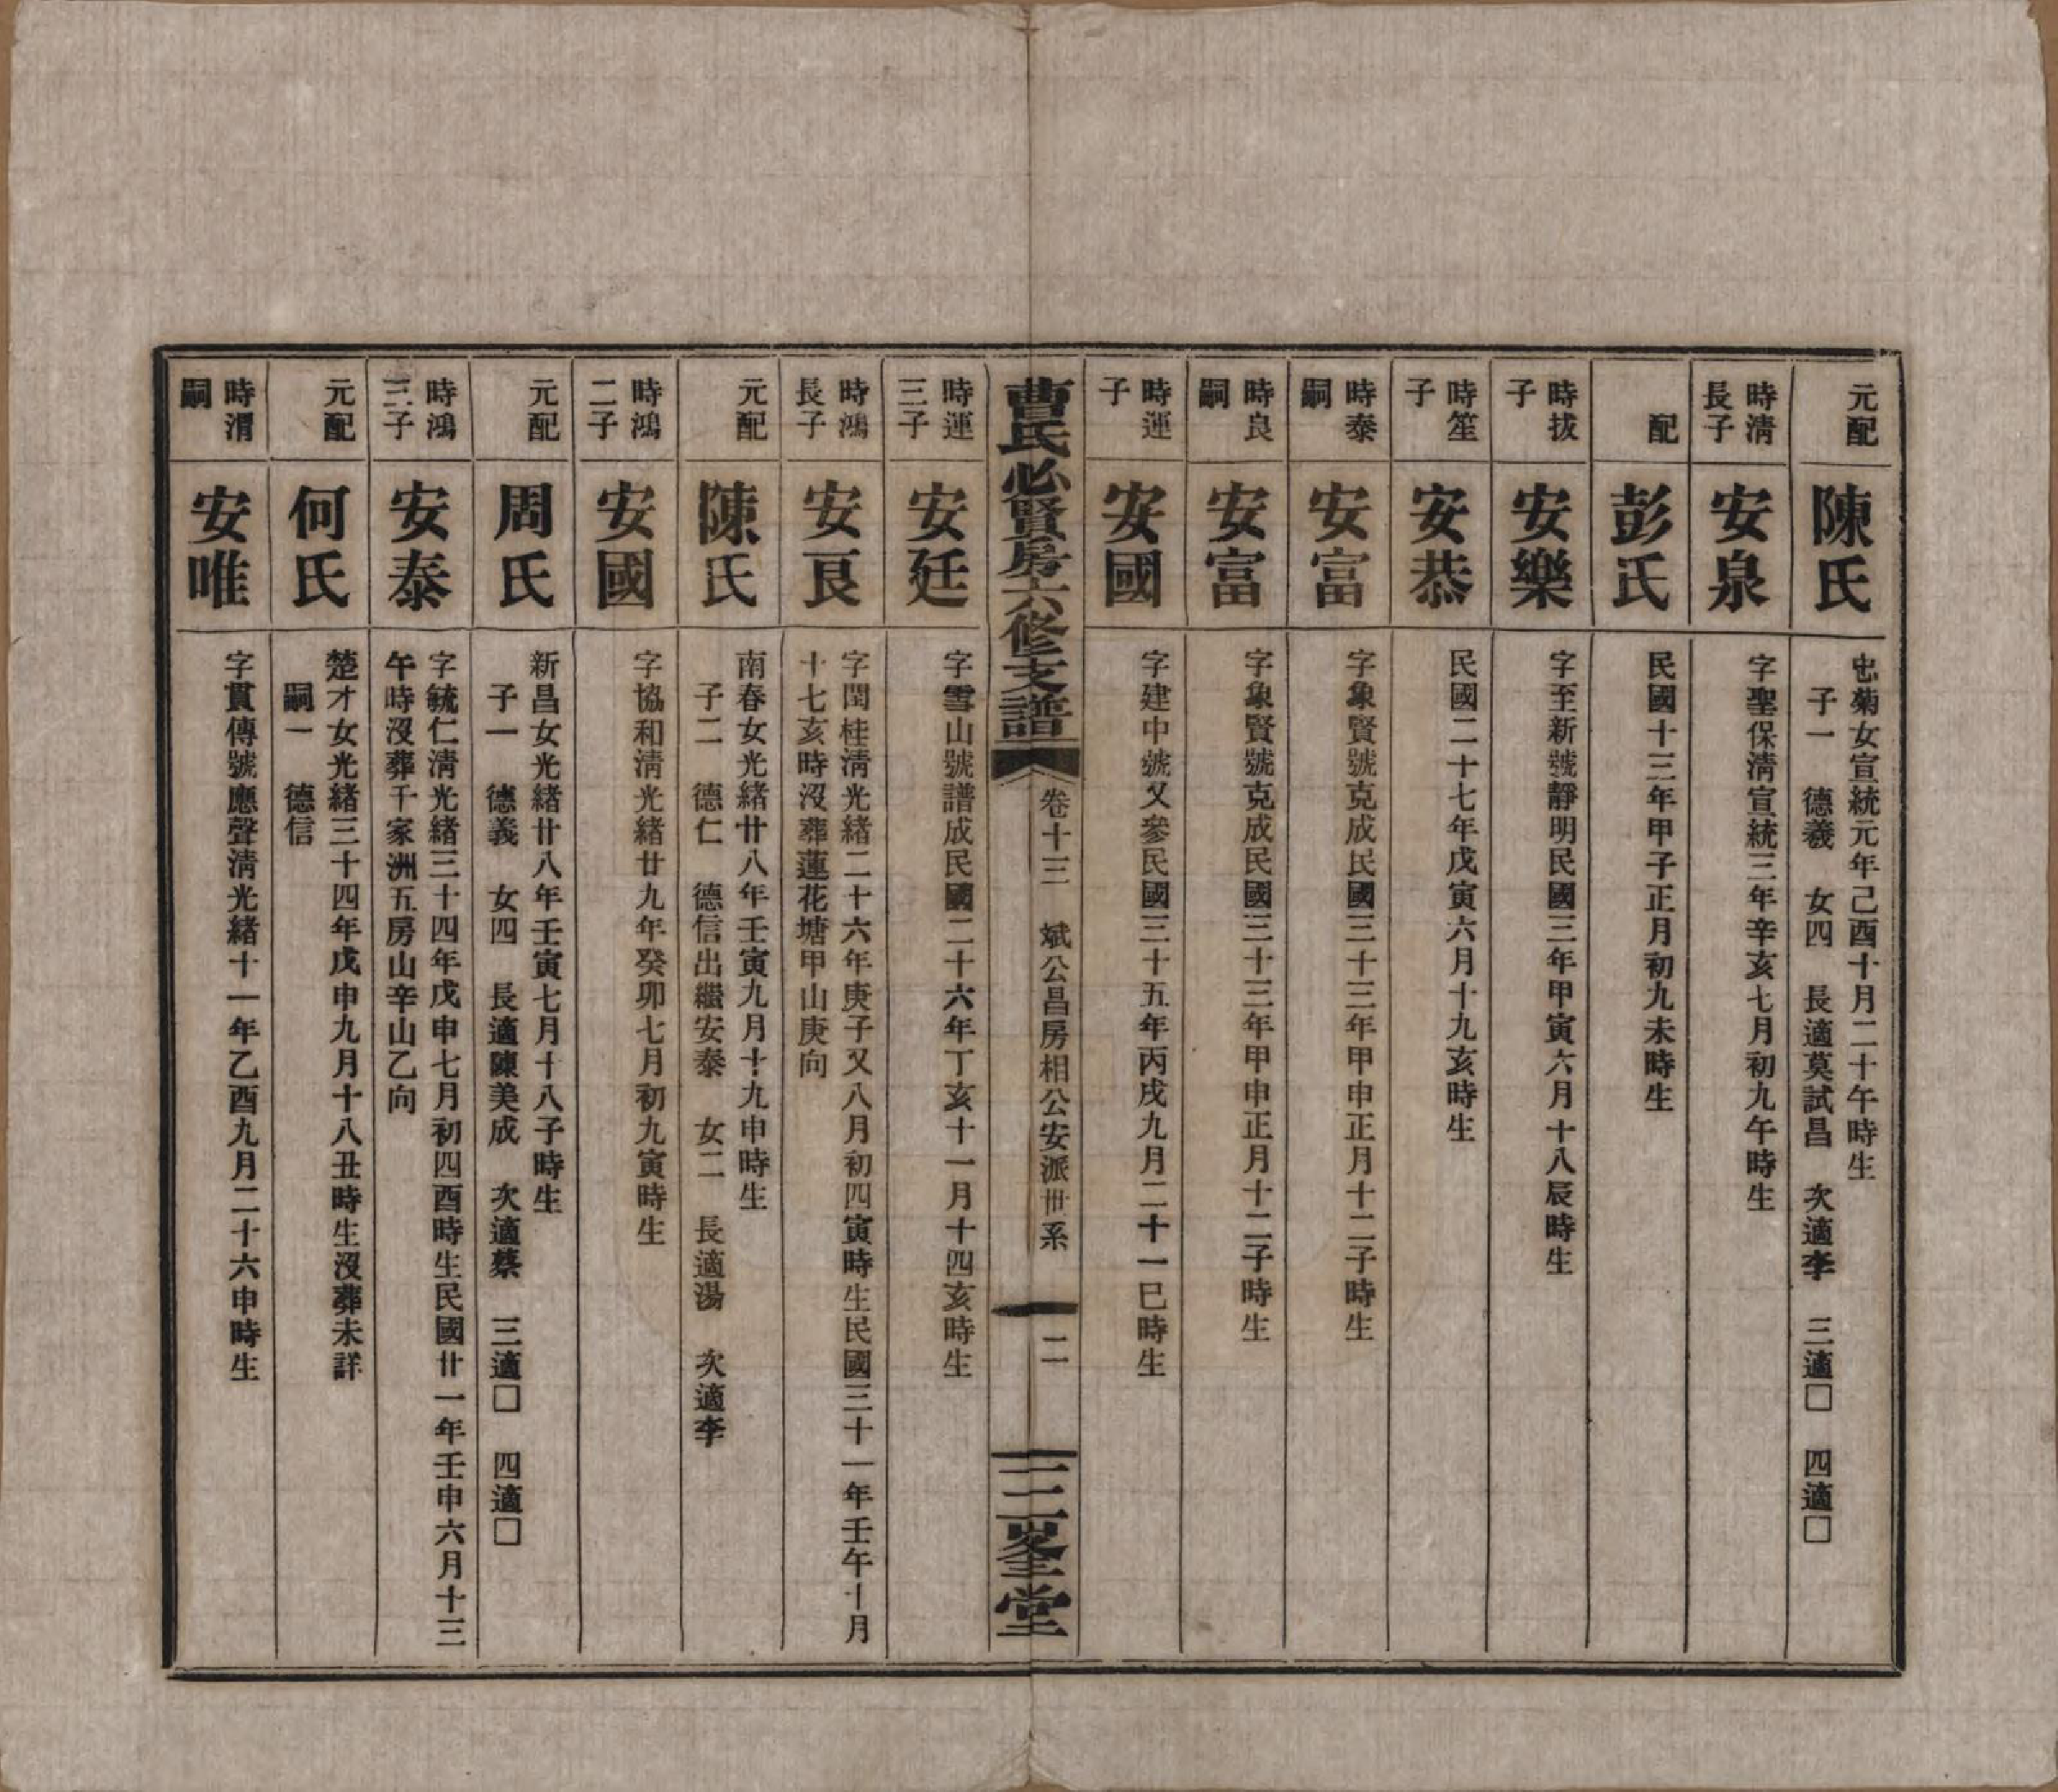 元配
陳氏
屯菊女宣統元年己酉十月二十午時生
子一　德義　女四　長適莫試昌　次適李　三適□　四適□
時清
長子
安泉
字聖保清宣統三年辛亥七月初九午時生
配
彭氏
民國十三年甲子正月初九未時生
時拔
子
安樂
字至新號靜明民國三年甲寅六月十八辰時生
時笙
子
安恭
民國二十七年戊寅六月十九亥時生
時泰
嗣
安富
字象賢號克成民國三十三年甲申正月十二子時生
時良
嗣
安富
字象賢號克成民國三十三年甲申正月十二子時生
時運
子
安國
字建中號又參民國三十五年丙戌九月二十一巳時生
曹氏必賢房六修支譜
卷十三　斌公昌房相公安派世系
二
三峚堂
時運
三子
安廷
字雪山號譜成民國二十六年丁亥十一月十四亥時生
時鴻
長子
安良
字閏桂清光緒二十六年庚子又八月初四寅時生民國三十一年壬午十月
十七亥時沒葬蓮花塘甲山庚向
元配
陳氏
南春女光緒廿八年壬寅九月十九申時生
子二　德仁　德信出繼安泰　女二　長適湯　次適李
時鴻
二子
安國
字協和清光緒廿九年癸卯七月初九寅時生
元配
周氏
新昌女光緒廿八年壬寅七月十八子時生
子一　德義　女四　長適陳美成　次適蔡　三適□　四適□
時鴻
三子
安泰
字毓仁清光緒三十四年戊申七月初四酉時生民國廿一年壬申六月十三
午時沒葬千家洲五房山辛山乙向
元配
何氏
楚才女光緒三十四年戊申九月十八丑時生沒葬未詳
嗣一　德信
時渭
嗣
安唯
字貫傳號應聲清光緒十一年乙酉九月二十六申時生